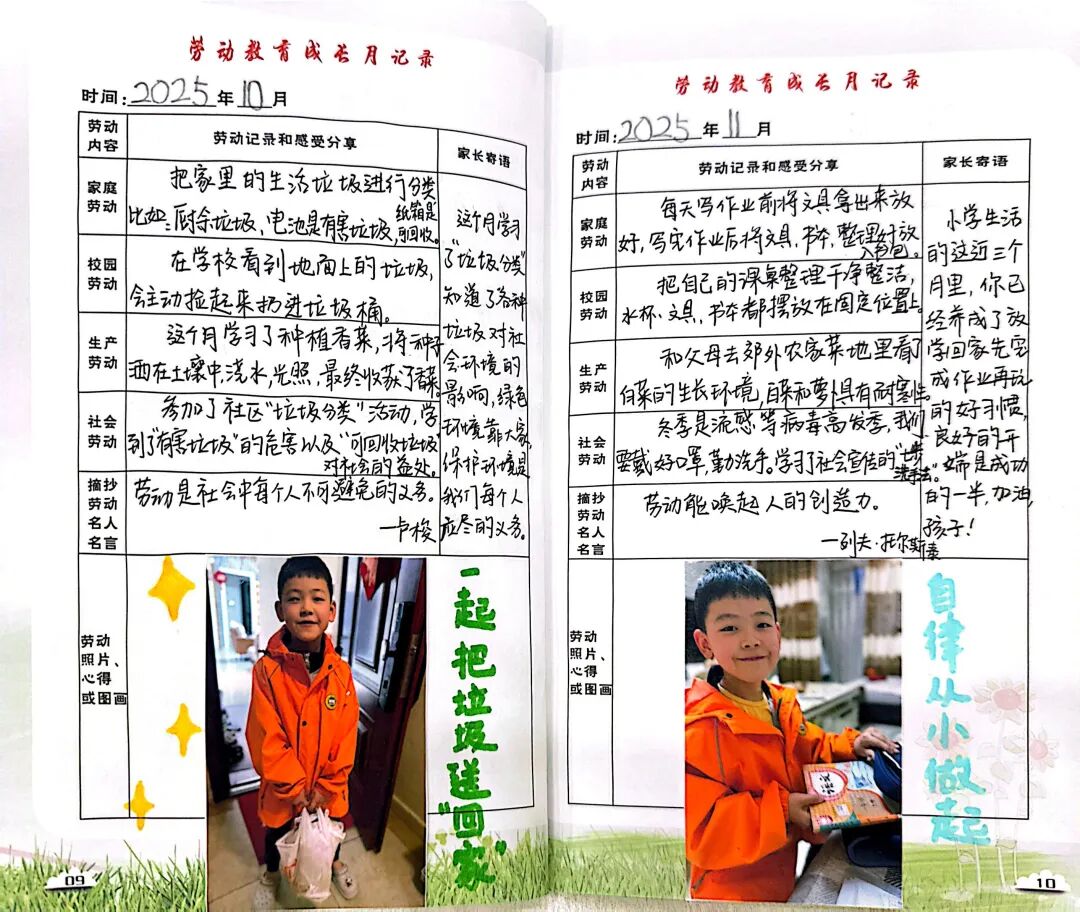 劳动教育成长月记录
时间:2025年10月
劳动
内容
劳动记录和感受分享
家长寄语
家庭
劳动
把家里的生活垃圾进行分类
比如:厨余垃圾,电池是有害垃圾,纸箱是
可回收。
校园
劳动
在学校看到地面上的垃圾,
会主动捡起来扔进垃圾桶。
生产
劳动
这个月学习了种植香菜,将种子
洒在土壤中,浇水,光照,最终收获了香菜。
社会
劳动
参加了社区"垃圾分类"活动,学
到了"有害垃圾"的危害以及"可回收垃圾"
对社会的益处。
摘抄
劳动
名人
名言
劳动是社会中每个人不可避免的义务。
—卢梭
这个月学习
了"垃圾分类"
知道了各种
垃圾对社
会环境的
影响,绿色
环境靠大家,
保护环境是
我们每个人
应尽的义务。
劳动
照片、
心得
或图画
一起把垃圾送"回家"
09
劳动教育成长月记录
时间:2025年11月
劳动
内容
劳动记录和感受分享
家长寄语
家庭
劳动
每天写作业前将文具拿出来放
好,写完作业后将文具,书本,整理好放
入书包。
校园
劳动
把自己的课桌整理干净整洁,
水杯、文具,书本都摆放在固定位置上。
生产
劳动
和父母去郊外农家菜地里看了
白菜的生长环境,白菜和萝卜具有耐寒性。
社会
劳动
冬季是流感等病毒高发季,我们
要戴好口罩,勤洗手。学习了社会宣传的"七步
洗手法"。
摘抄
劳动
名人
名言
劳动能唤起人的创造力。
—列夫·托尔斯泰
小学生活
的这近三个
月里,你已
经养成了放
学回家先完
成作业再玩
的好习惯,
良好的开
端是成功
的一半,加油,
孩子!
劳动
照片、
心得
或图画
语文
自律从小做起
10